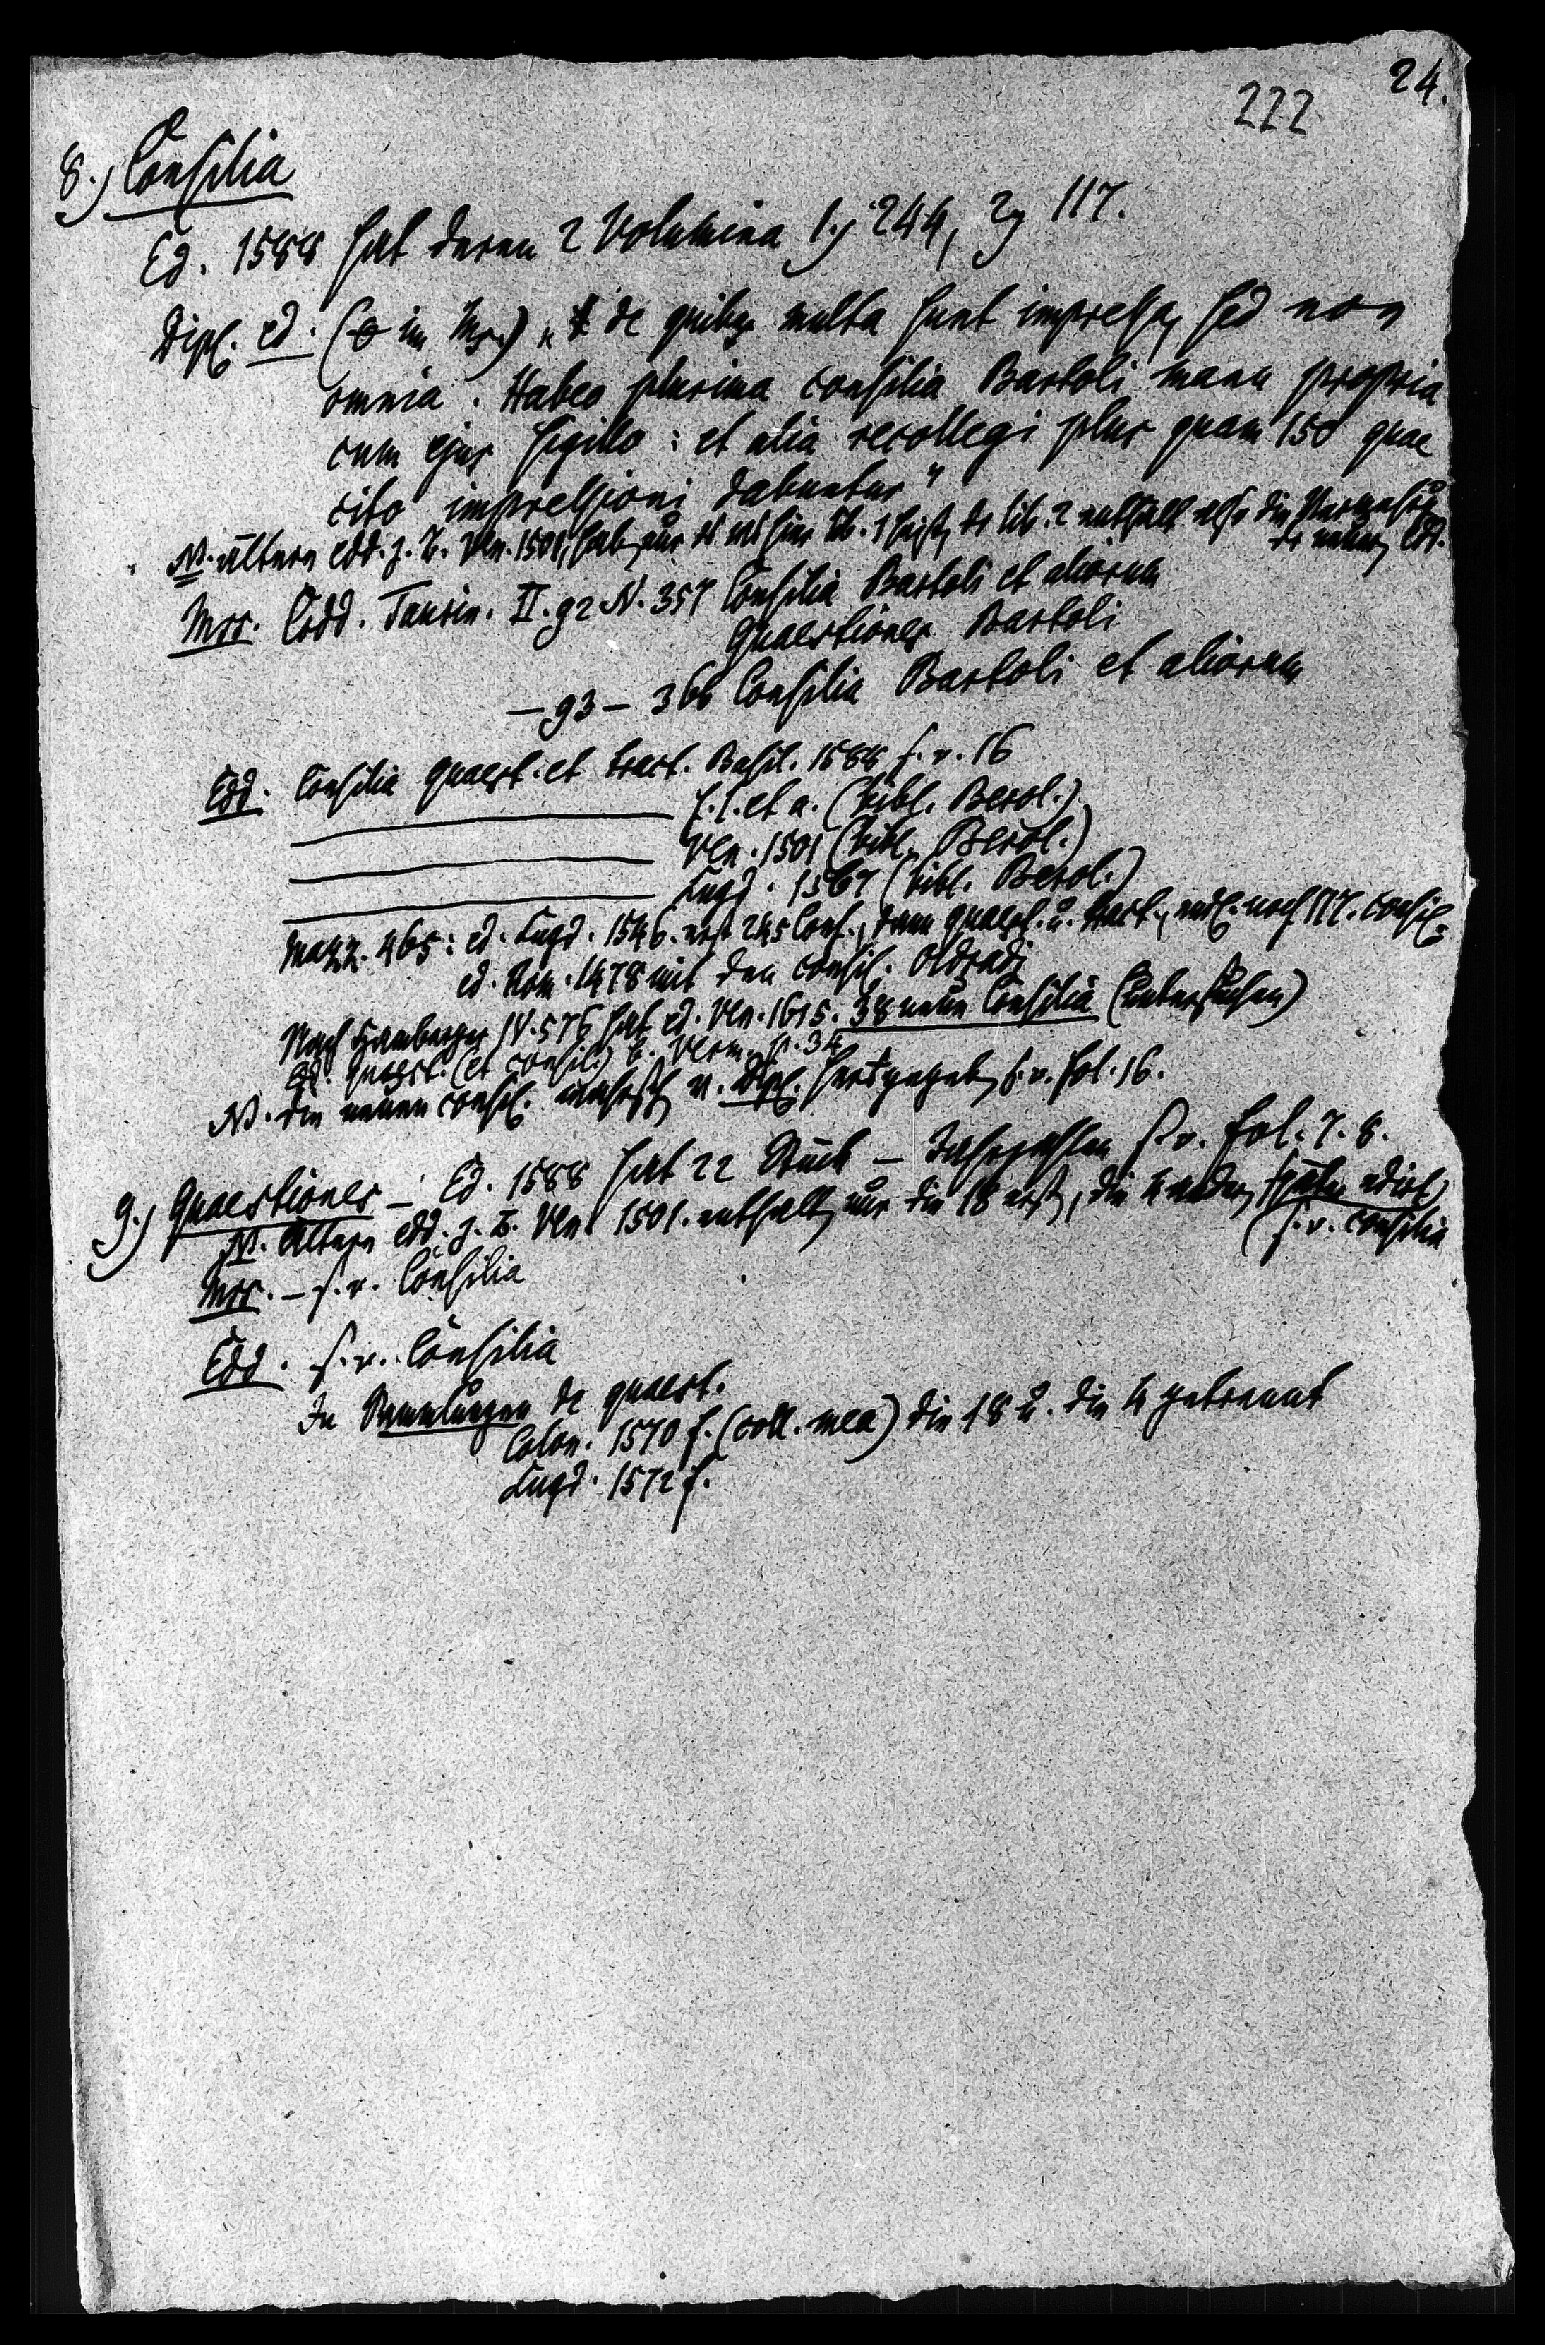 24.
222
8.) Consilia
Ed. 1588 hat deren 2 Volumina 1.) 244, 2) 117.
Dipl. ed. (0 im Msc.) „de quibus multa sunt impressa, sed non
omnia. Habeo plurima consilia Bartoli manu propria
cum ejus sigillo: et alia recollegi plus quam 150 quae
cito impressioni dabuntur“
N. ältere edd. z. B. Ven. 1501, nur lib. 1 lib. 2 enthält also die
der neuen Edd.
Mss. Codd. Taurin. II. 92 N. 357 Consilia Bartoli et aliorum
Quaestiones Bartoli
— 93 — 366 Consilia Bartoli et aliorum
Edd. Consilia quaest. et tract. Basil. 1588 f. v. 16
s. l. et a. (bibl. Berol.)
Ven. 1501 (bibl. Berol.)
Lugd. 1567 (bibl. Berol.)
Mazz. 465: ed. Lugd. 1546. erst 245 Cons., dann quaest. u. tract., endl. noch 117. consil.
ed. Rom. 1478 mit den consil. Oldradi
Nach Hamberger IV. 576 hat ed. Ven. 1615. 38 neue Consilia
Ed. quaest. (et consil.) p. 34
N. die neuen consil. v. Dipl. f. v. fol. 16.
9.) Quaestiones — Ed. 1588 hat 22 Stück — Jahrzahlen s. v. fol. 7. 8.
N. Ältere edd. z. B. Ven. 1501. enthalten nur die 18 ersten, die 4 andern später edirt
(s. v. Consilia
Mss. — s. v. Consilia
Edd. s. v. Consilia
In Sammlungen de quaest.
Colon. 1570 f. (coll. mea) die 18 u. die 4 getrennt
Lugd. 1572 f.